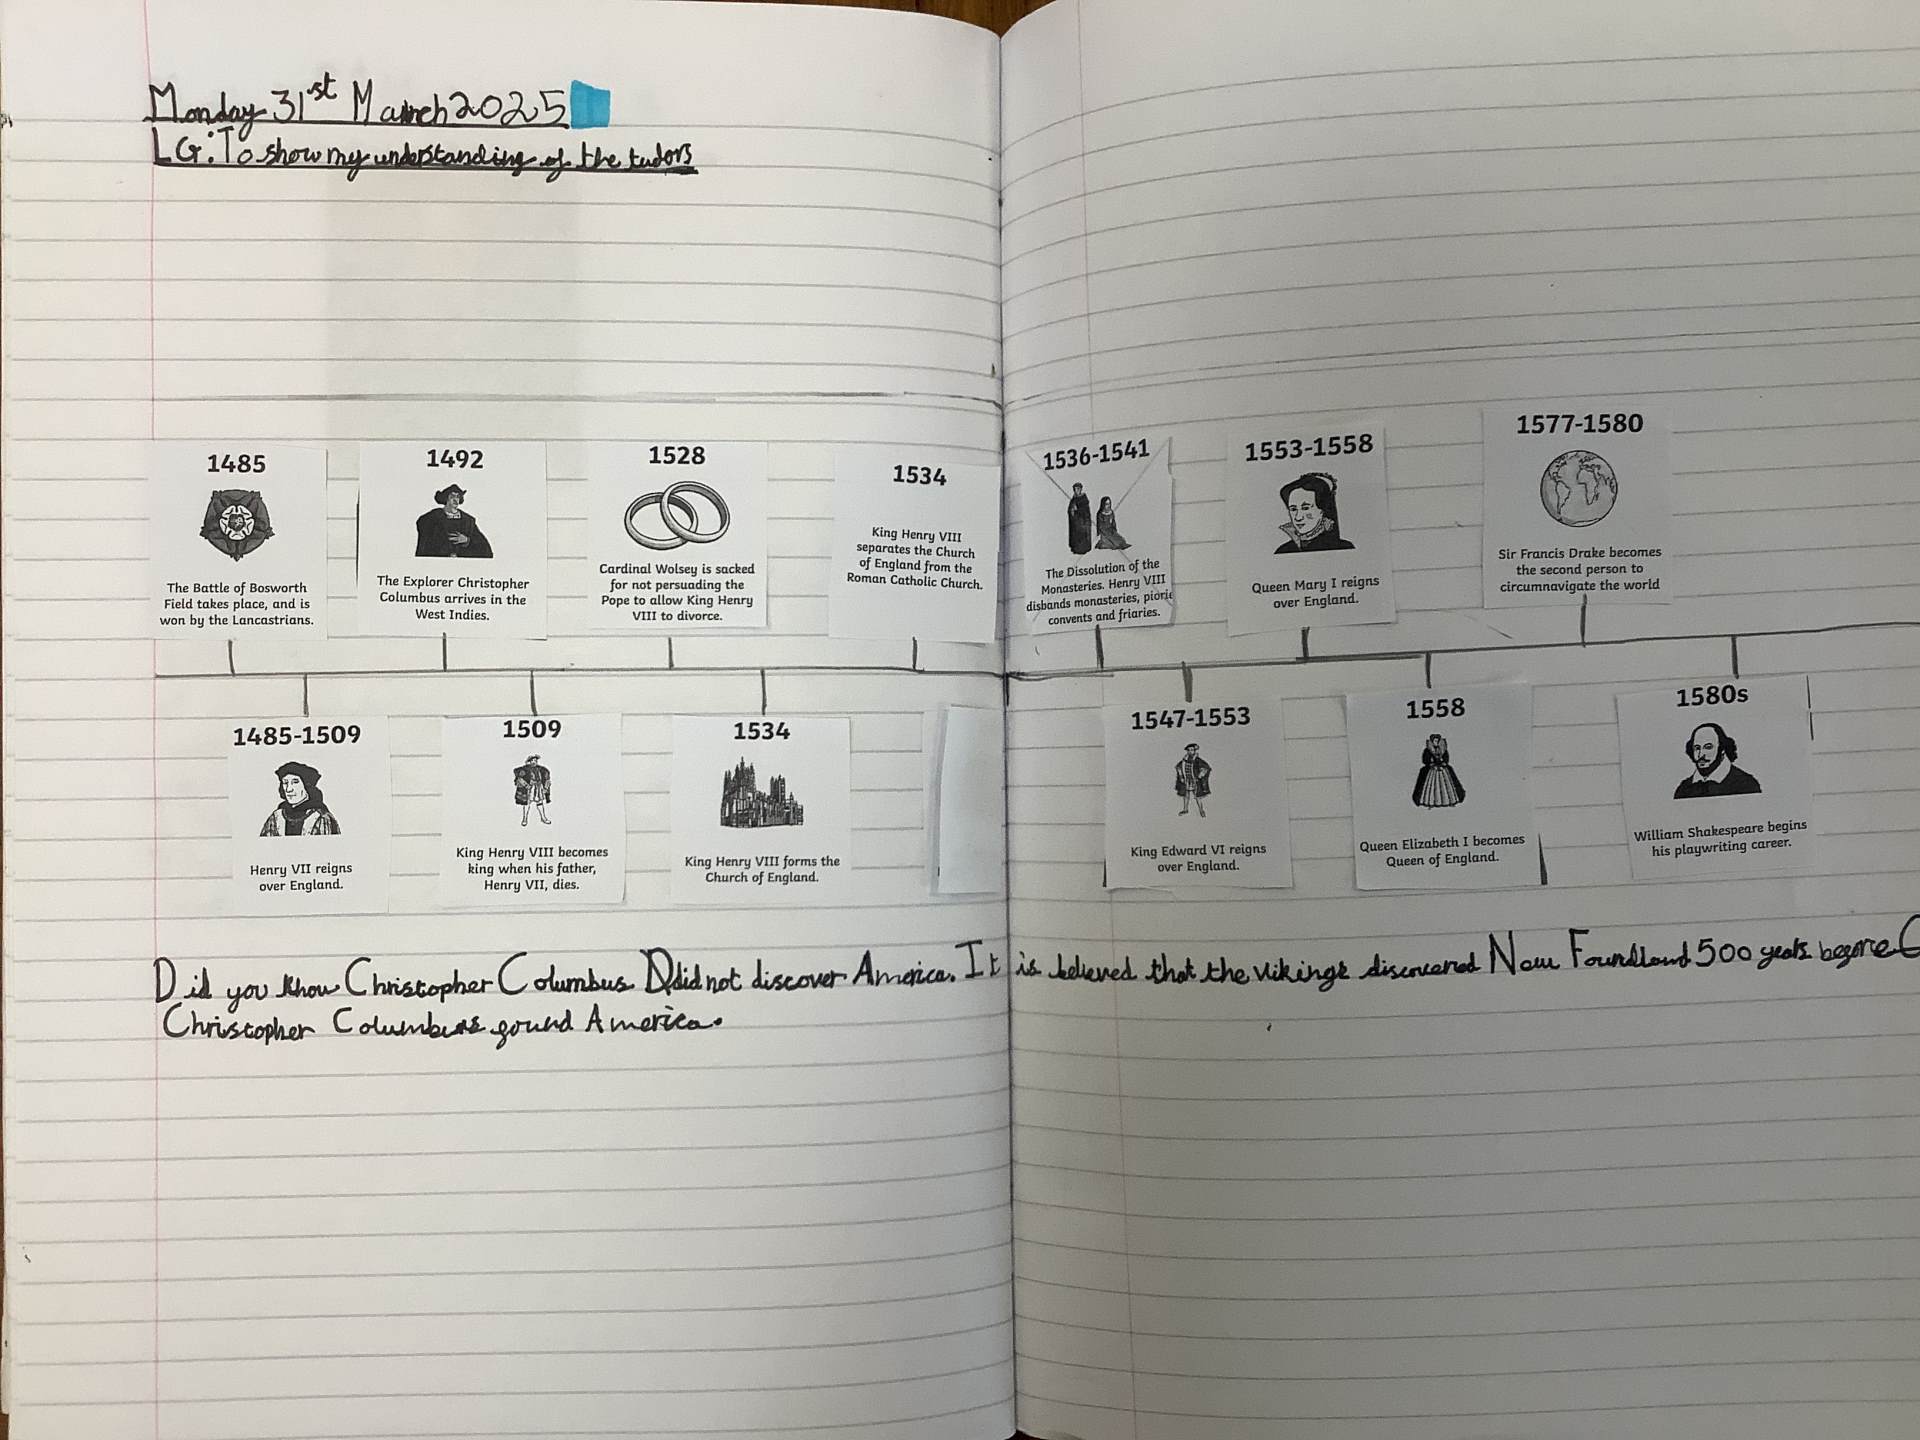 Monday 31st March 2025
LG: To show my understanding of the tudors
1485
The Battle of Bosworth
Field takes place, and is
won by the Lancastrians.
1492
The Explorer Christopher
Columbus arrives in the
West Indies.
1528
Cardinal Wolsey is sacked
for not persuading the
Pope to allow King Henry
VIII to divorce.
1534
King Henry VIII
separates the Church
of England from the
Roman Catholic Church.
1536-1541
The Dissolution of the
Monasteries. Henry VIII
disbands monasteries, piorie
convents and friaries.
1553-1558
Queen Mary I reigns
over England.
1577-1580
Sir Francis Drake becomes
the second person to
circumnavigate the world
1485-1509
Henry VII reigns
over England.
1509
King Henry VIII becomes
king when his father,
Henry VII, dies.
1534
King Henry VIII forms the
Church of England.
1547-1553
King Edward VI reigns
over England.
1558
Queen Elizabeth I becomes
Queen of England.
1580s
William Shakespeare begins
his playwriting career.
Did you know Christopher Columbus Ddid not discover America. It is believed that the vikings discovered New Foundland 500 years before C
Christopher Columbus found America.